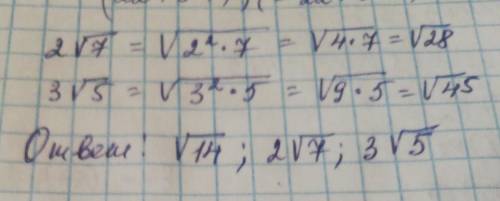 2√7 = √(2²·7) = √(4·7) = √28
3√5 = √(3²·5) = √(9·5) = √45
Ответ: √14; 2√7; 3√5